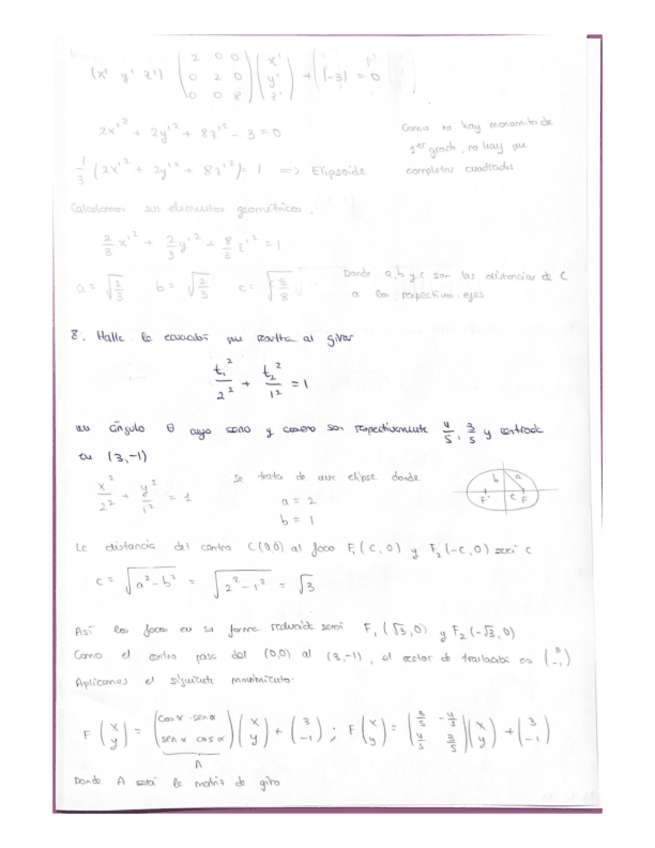 (x' y' z') (2 0 0 / 0 2 0 / 0 0 8) (x' / y' / z') + (-3) = 0
2x'² + 2y'² + 8z'² - 3 = 0
Como no hay monomios de
1er grado, no hay que
completar cuadrados
1/3 (2x'² + 2y'² + 8z'²) = 1 => Elipsoide
Calculamos sus elementos geométricos.
2/3 x'² + 2/3 y'² + 8/3 z'² = 1
a = √(2/3) b = √(2/3) c = √(3/8)
Donde a, b y c son las distancias de C
a los respectivos ejes
8. Halle la ecuación que resulta al girar
t₁²/2² + t₂²/1² = 1
un ángulo θ cuyo seno y coseno son respectivamente 4/5, 3/5 y centrada
en (3,-1)
x²/2² + y²/1² = 1
Se trata de una elipse donde
a = 2
b = 1
b a
F' C F
La distancia del centro C(0,0) al foco F₁(c,0) y F₂(-c,0) será c
c = √(a² - b²) = √(2² - 1²) = √3
Así los focos en su forma reducida será F₁(√3,0) y F₂(-√3,0)
Como el centro pasa del (0,0) al (3,-1), el vector de traslación es (3 / -1)
Aplicamos el siguiente movimiento:
F (x / y) = (cos α -sen α / sen α cos α) (x / y) + (3 / -1) ; F (x / y) = (3/5 -4/5 / 4/5 3/5) (x / y) + (3 / -1)
A
Donde A será la matriz de giro